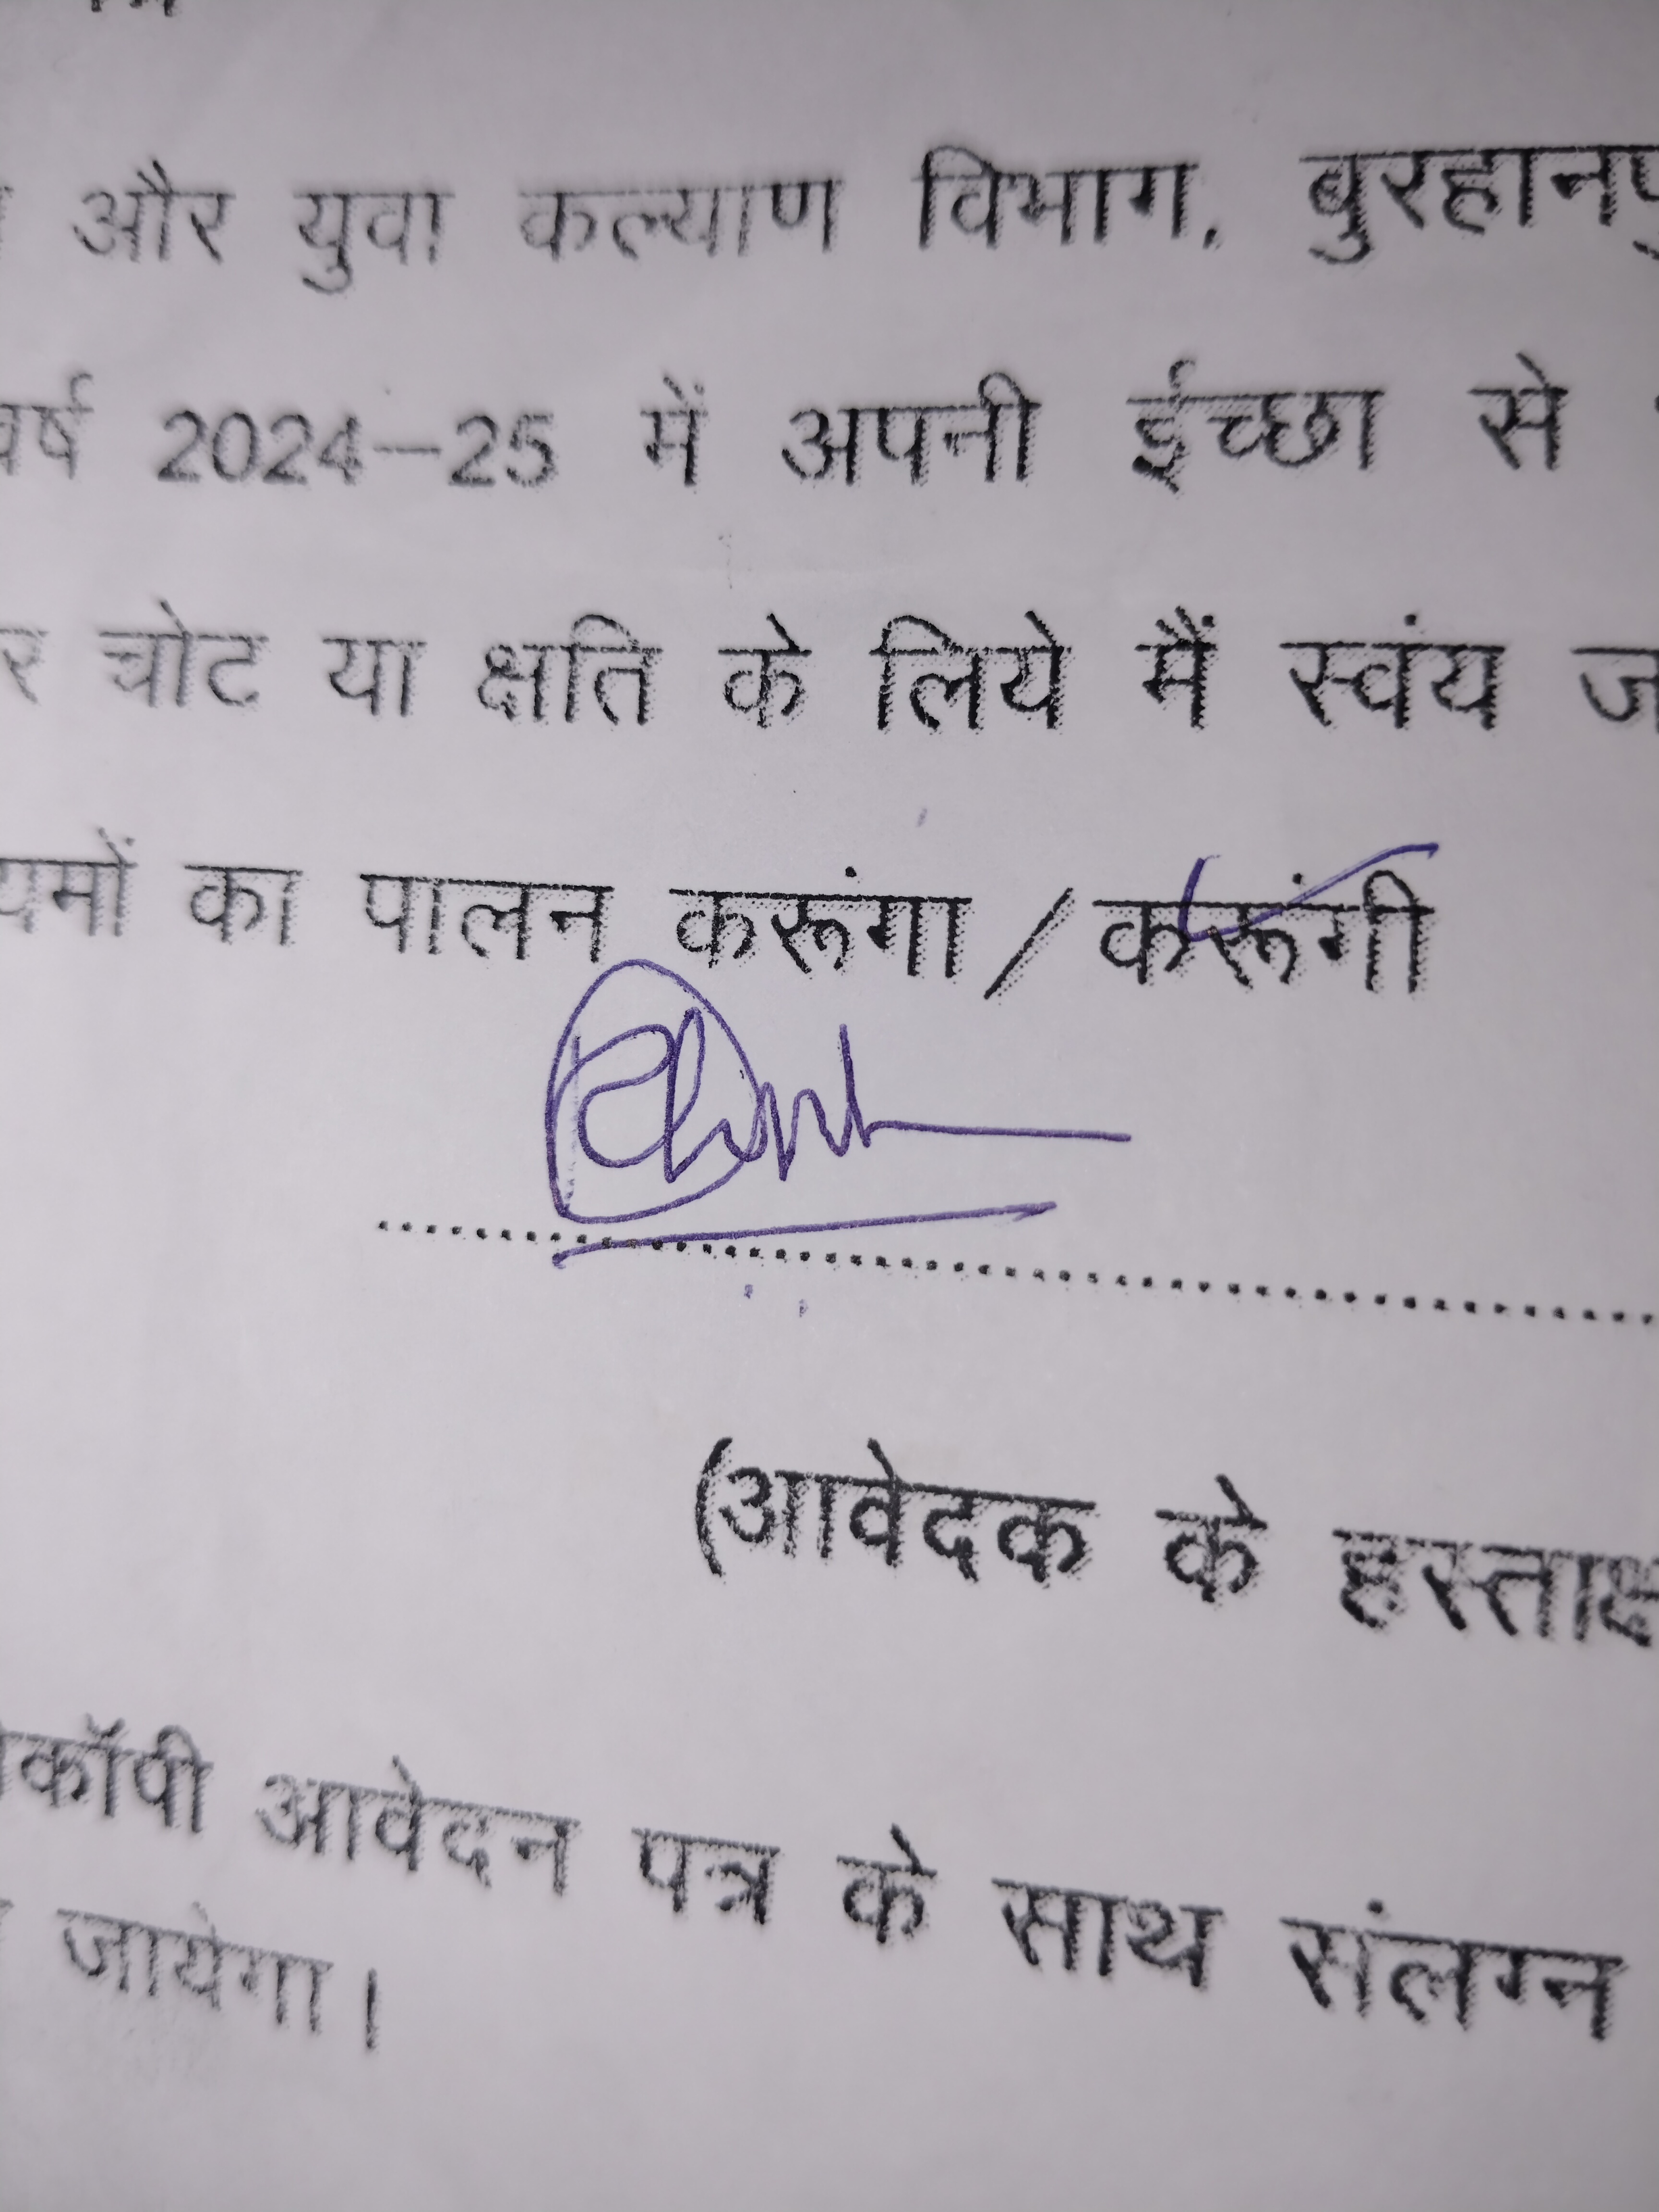 और युवा कल्याण विभाग, बुरहानपु
वर्ष 2024–25 में अपनी ईच्छा से
र चोट या क्षति के लिये मैं स्वंय ज
यमों का पालन करूंगा / करूंगी
(आवेदक के हस्ताक्ष
कॉपी आवेदन पत्र के साथ संलग्न
जायेगा।